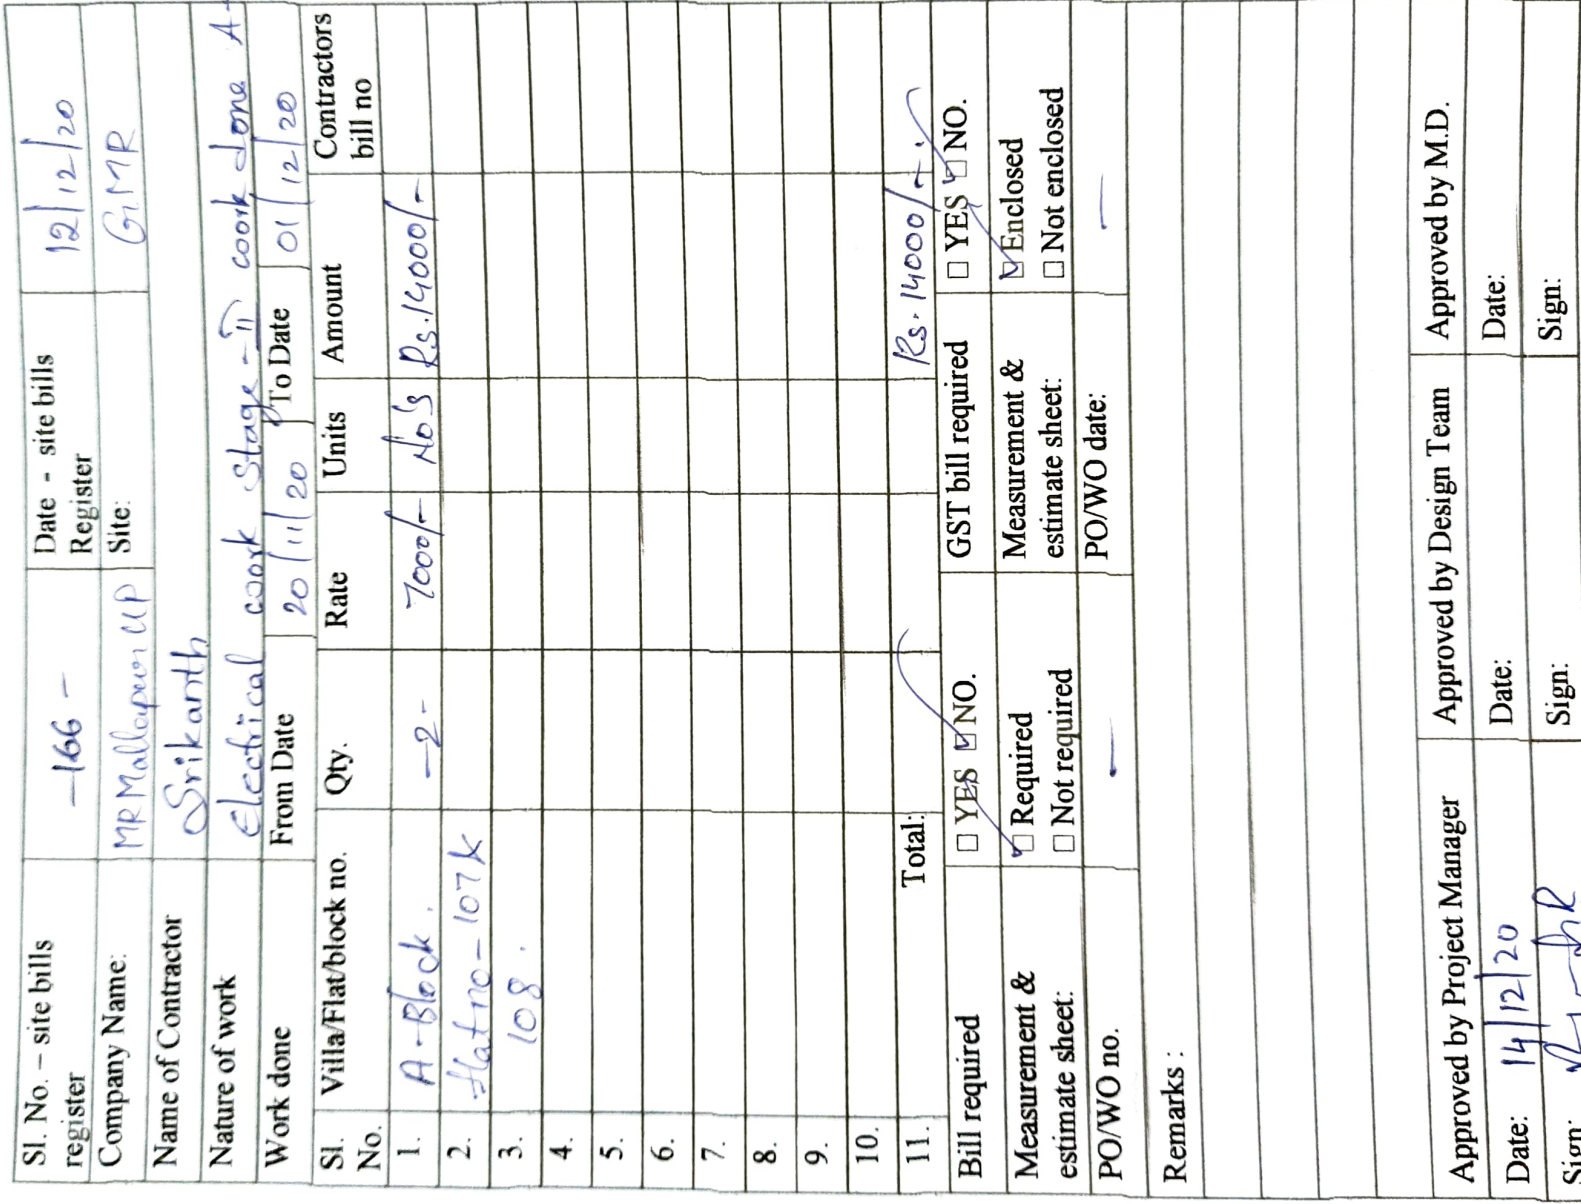 Sl. No. – site bills register -166- Date - site bills Register 12/12/20
Company Name: MR Mallapur LLP Site: GMR
Name of Contractor Srikanth
Nature of work Electrical work Stage - II work done A-
Work done From Date 20/11/20 To Date 01/12/20
Sl. No. Villa/Flat/block no. Qty. Rate Units Amount Contractors bill no
1. A-Block. -2- 7000/- No's Rs.14000/-
2. flat no - 107 &
3. 108.
4.
5.
6.
7.
8.
9.
10.
11. Total: Rs. 14000/-
Bill required ☐ YES ☑ NO. GST bill required ☐ YES ☑ NO.
Measurement & estimate sheet: ☑ Required ☐ Not required Measurement & estimate sheet: ☑ Enclosed ☐ Not enclosed
PO/WO no. — PO/WO date: —
Remarks :
Approved by Project Manager Approved by Design Team Approved by M.D.
Date: 14/12/20 Date: Date:
Sign: Sign: Sign: